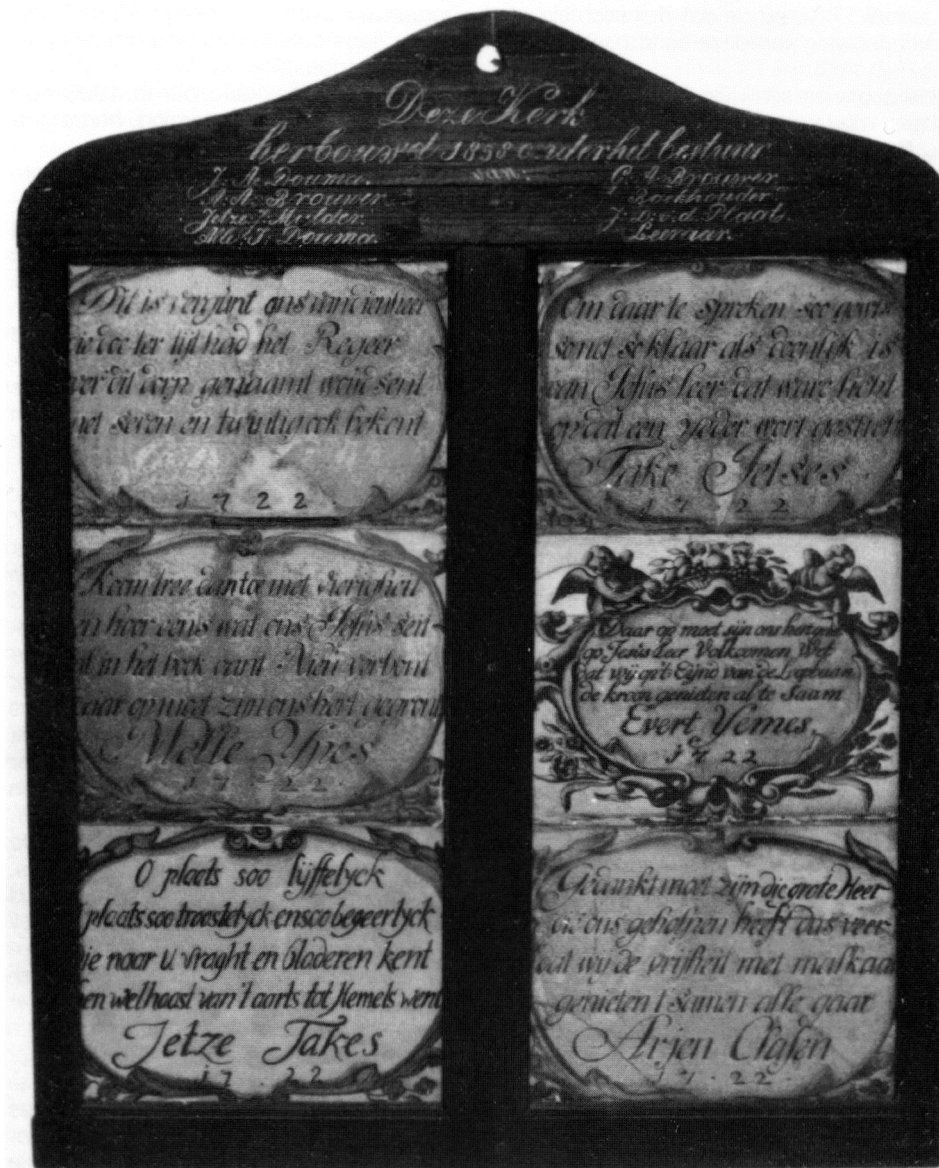 Deze Kerk
herbouwd 1858 onder het bestuur
van.
J. A. Douma.
A. A. Brouwer
Jetze T. Mulder
T. Douma.
G. A. Brouwer
Boekhouder
J. D. v. d. Plaats.
Leeraar.
Dit is vergunt ons van
ter tijt had het Regeer
ver dit dorp genaamt
met seven en twintig ook bekent
1722
Koom tree dan toe met vierigheit
en hoor eens wat ons Jesus seit
at in het boek vant Nieu verbont
aar op moet zijn ons hert gegront
Melle Ypes
1722
O plaets soo lyffelyck
plaets soo troostelyck en soo begeerlyck
ie naar u vreght en bladeren kent
en wel haast van 't aarts tot Hemels went
Jetze Takes
17 22
Om daar te spreken soo gewis
so net so klaar als doenlijk is
van Jesus leer dat ware licht
op dat een yeder wort gesticht
Take Jetses
1722
Daar op moet sijn ons hert
op Jesus Leer Volkomen Wet
dat wij opt Eijnd van de Loopbaan
de kroon genieten al te Saam
Evert Yemes,
1722
Gedankt moet zijn die grote Heer
die ons geholpen heeft dus veer
dat wy de vrijheit met malkaar
genieten t'samen alle gaar
Arjen
17.22